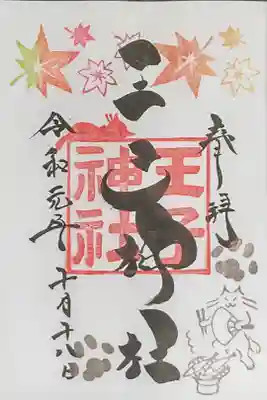 奉拝
王子神社
王子
神社
令和元年
十月十八日